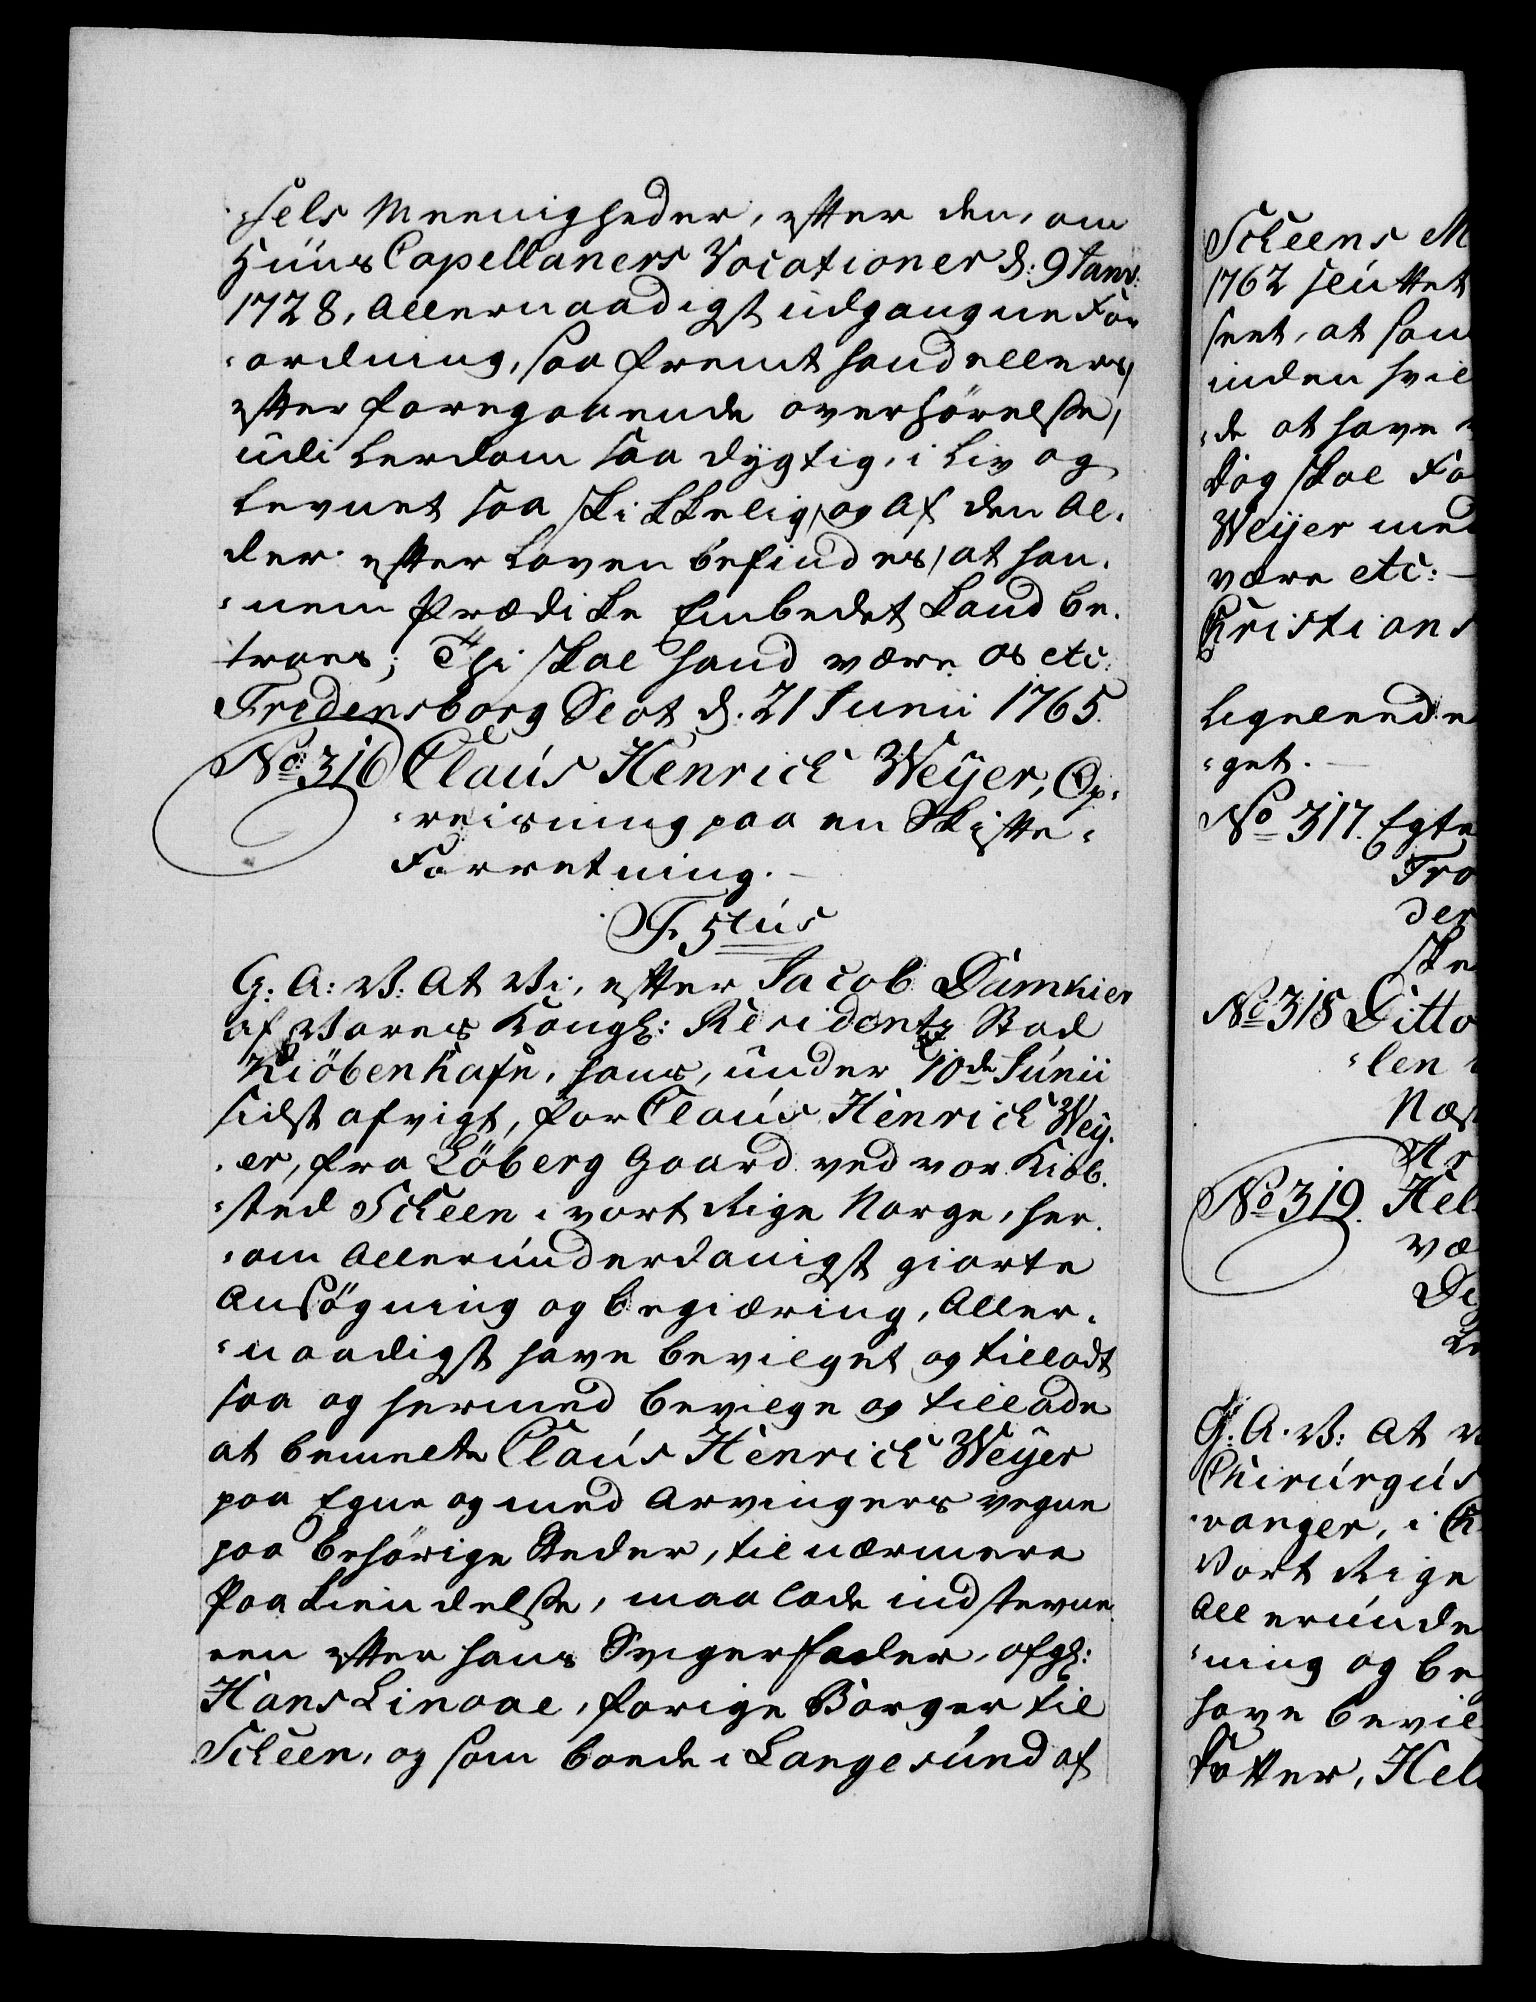 sels Meenigheder, efter den, om
Huus Capellaners Vocationer d: 9 Janv:
1728, Allernaadigst udgangne For
ordning, saa fremt hand ellers,
efter foregaaende overhörelse,
udi Lerdom saa dygtig, i Liv og
Levnet saa skikkelig, og Af den Al-
der efter Loven befindes, at han-
nem Prædike Embedet kand be-
troes; Thi skal hand være os etc:
Fredensborg Slot d. 21 Junii 1765.
No: 316 Claus Henrich Weyer, Op-
reisning paa en Skifte-
Forretning.
F. 5tus
G: A: V: At Vi, efter Jacob Damkier
af Vores Kongl: Residentz Stad
Kiöbenhafn, hans, under 10de Junii
sidst afvigt, for Claus Henrich Wey-
er, fra Löberg Gaard ved vor Kiöb-
sted Scheen i vort Rige Norge, her-
om Allerunderdanigst giorte
Ansögning og begiæring, Aller-
naadigst have bevilget og tilladt
saa og hermed bevilge og tillade
at bemelte Claus Henrich Weyer
paa Egne og med Arvingers vegne
paa behörige Steder, til nærmere
Paakiendelse, maa lade indstevne
een efter hans Svigerfader, afgl:
Hans Linaae, forige Borger til
Scheen, og som boede i Langesund af
Scheens M
1762 sluttet
seet, at han
inden hvil
de at have
dog skal Fo
Weyer med
være etc:
Christians
Ligelende
get.
No 317. Egte
Fro
der
ske
No 318 Ditto
len
Næs
Hr
No 319. Hel
væ
De
G. A. V: At v
Chirurgus
vanger, i Ch
Vort Rige
Allerunde
ning og be
have bevil
Dotter, Hel